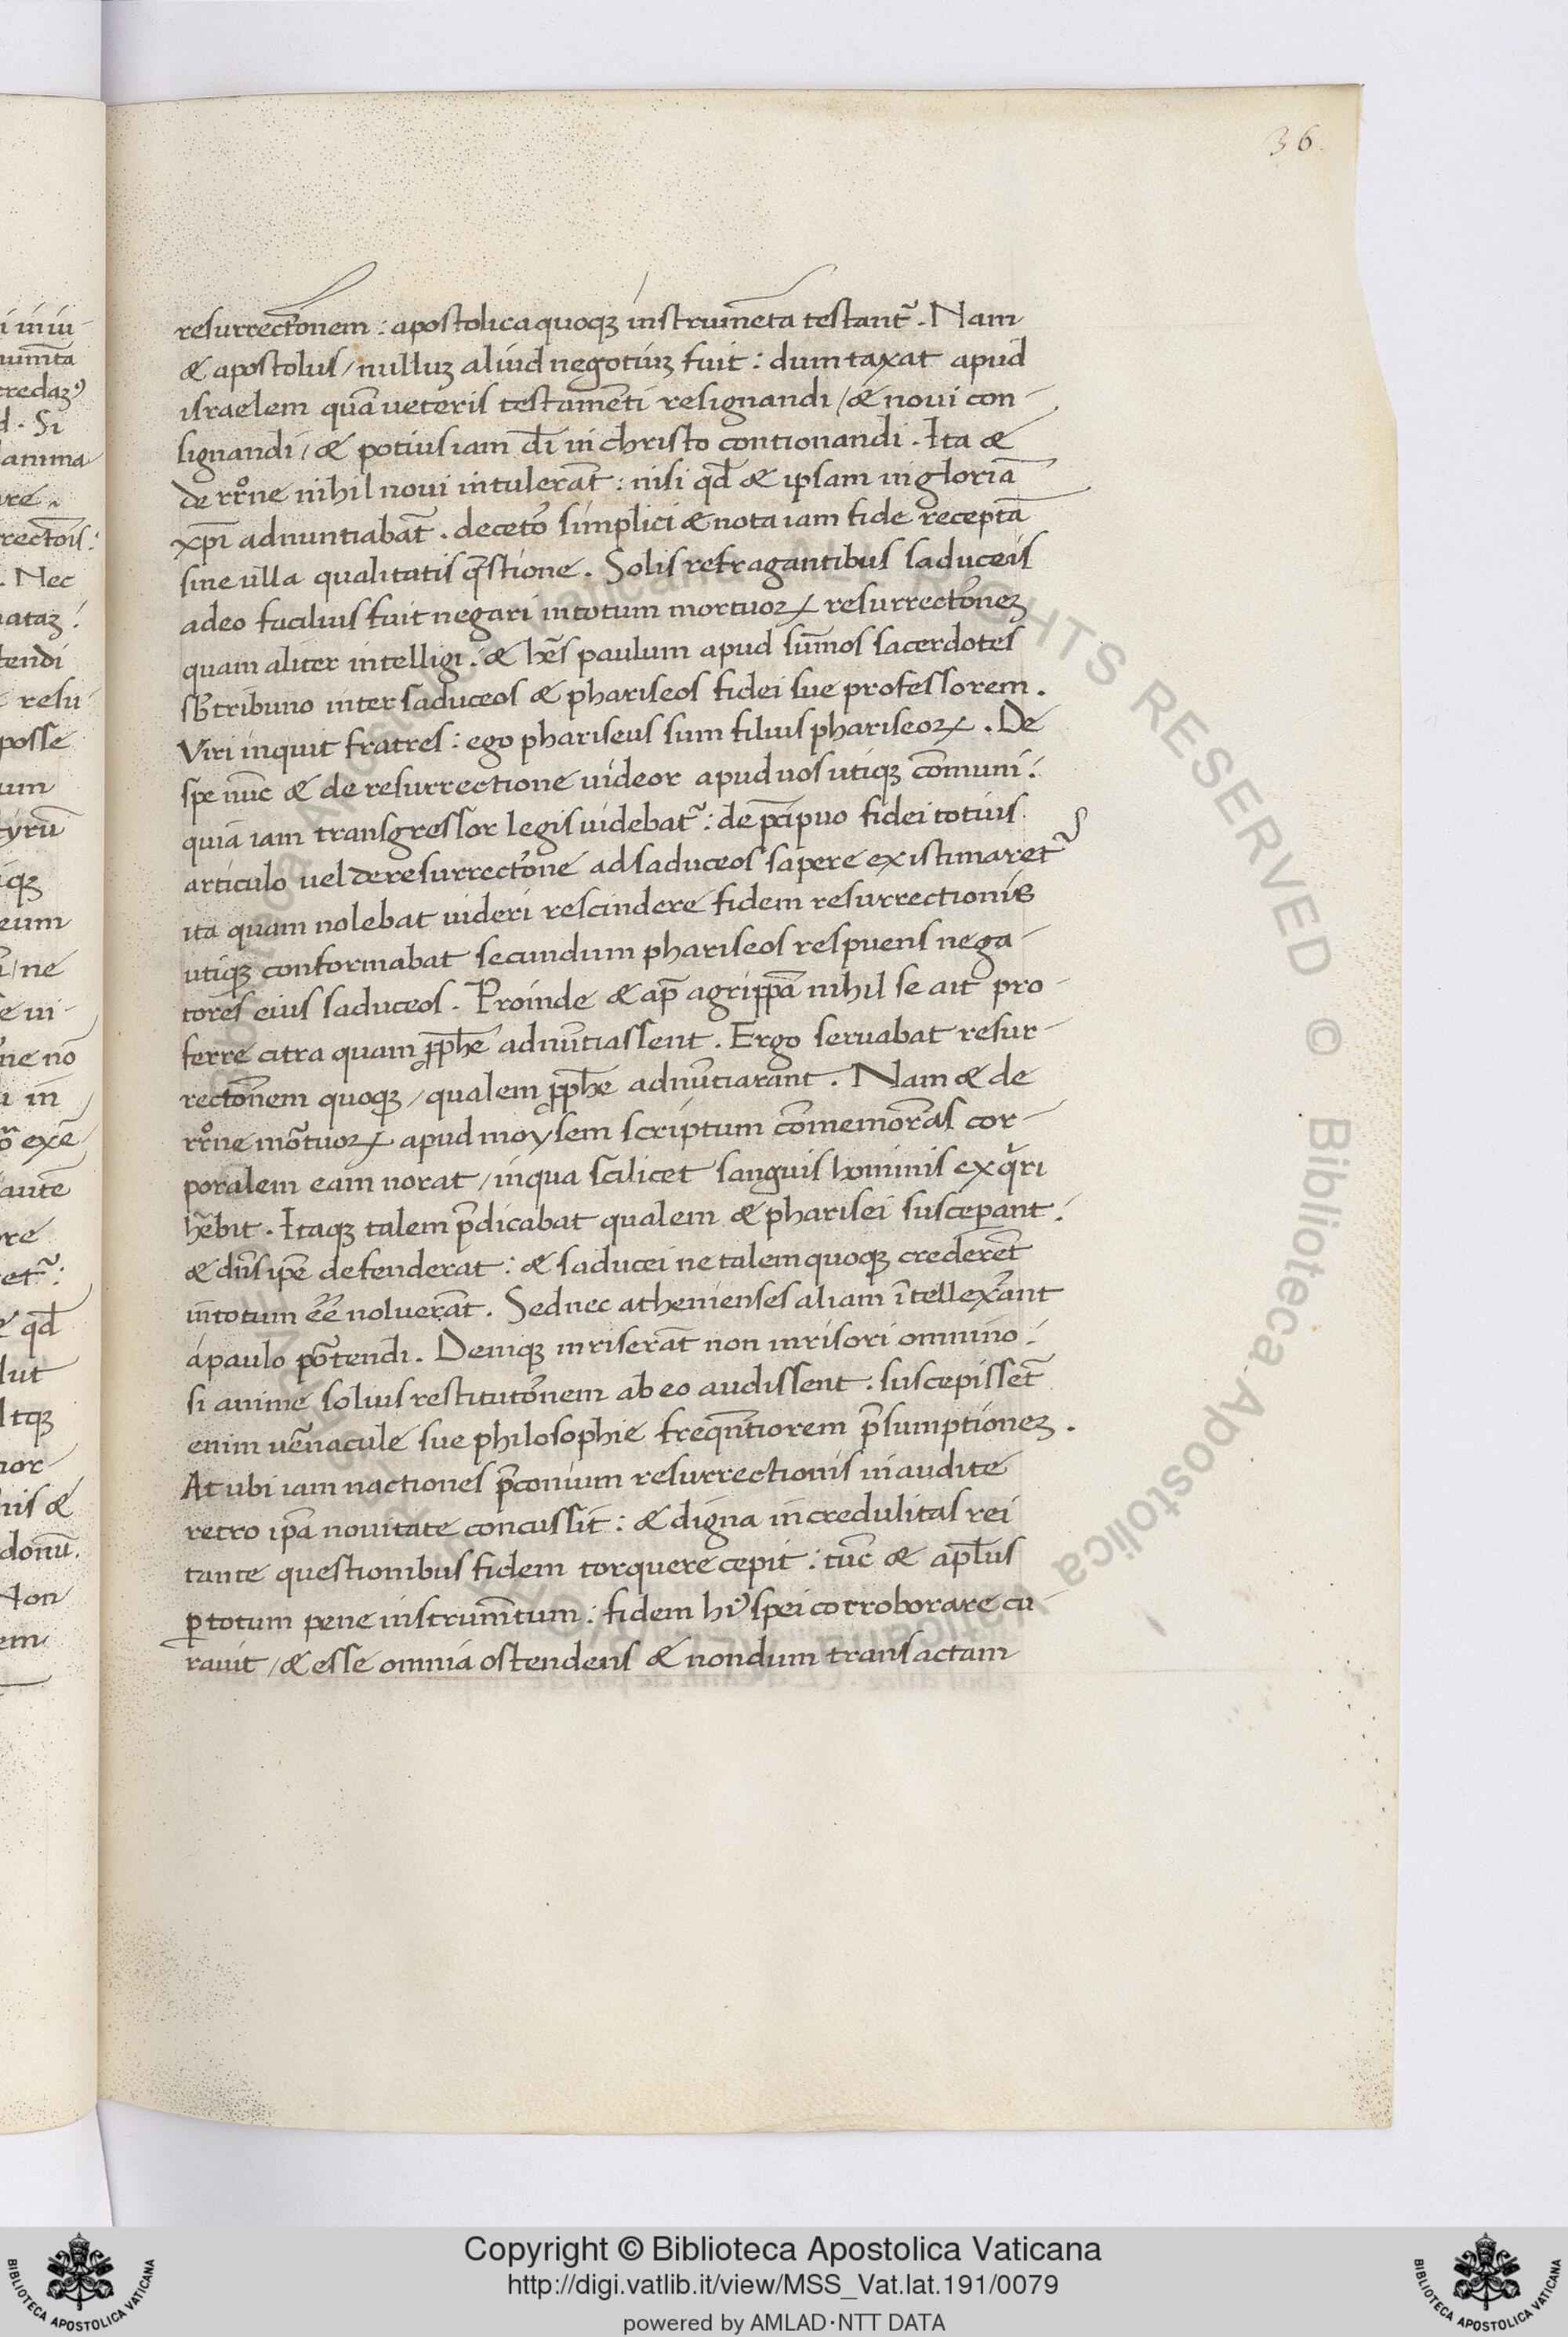 36.
resurrect̃onem : apostolica quoqꝫ instrum̃eta testant̃ . Nam
& apostolus / nulluꝫ aliud negotiuꝫ fuit : dum taxat apud
israelem quã veteris testam̃eti resignandi / & noui con-
signandi / & potius iam d̃i in christo contionandi . Ita &
de rr̊ne nihil noui intulerãt : nisi qđ & ipsam in gloriã
xp̃i adnuntiabãt . de ceteõ simplici & nota iam fide receptã
sine ulla qualitatis q̃stione . Solis refragantibus saduceis
adeo facilius fuit negari in totum mortuoꝝ resurrect̃oneꝫ
quam aliter intelligi . & hẽs paulum apud sũmos sacerdotes
sƀ tribuno inter saduceos & phariseos fidei sue professorem .
Viri inquit fratres : ego phariseus sum filius phariseoꝝ . De
spe nũc & de resurrectione uideor apud uos utiqꝫ cõmuni :
quia iam transgressor legis uidebat̃ : de p̃cipuo fidei totius
articulo uel de resurrect̃one ad saduceos sapere existimaret̃
ita quam nolebat uideri rescindere fidem resurrectionis
utiqꝫ conformabat secundum phariseos respuens nega-
tores eius saduceos . Proinde & ap̃ agrippã nihil se ait pro-
ferre citra quam ꝓph̃e adnũtiassent . Ergo seruabat resur-
rect̃onem quoqꝫ / qualem ꝓph̃e adnũtiarant . Nam & de
rr̊ne mõtuoꝝ apud moysem scriptum cõmemorãs cor-
poralem eam norat / in qua scilicet sanguis hominis exq̃ri
hẽbit . Itaqꝫ talem p̃dicabat qualem & pharisei susceperant :
& dñs ip̃e defenderat : & saducei ne talem quoqꝫ crederẽt
in totum ẽẽ noluerãt . Sed nec athenienses aliam ĩtellex̃ant
a paulo põtendi . Deniqꝫ inriserãt non inrisori omnino :
si anime solius restitut̃onem ab eo audissent : suscepissẽt
enim uẽnacule sue philosophie freqũtiorem p̃sumptioneꝫ .
At ubi iam nactiones p̃conium resurrectionis inaudite
retro ip̃a nouitate concussit : & digna incredulitas rei
tante questionibus fidem torquere cepit : tũc & apl̃us
ꝑ totum pene instrum̃tum : fidem hỉ spei corroborare cu-
rauit / & esse omnia ostendens & nondum transactam
Copyright © Biblioteca Apostolica Vaticana
http://digi.vatlib.it/view/MSS_Vat.lat.191/0079
powered by AMLAD·NTT DATA